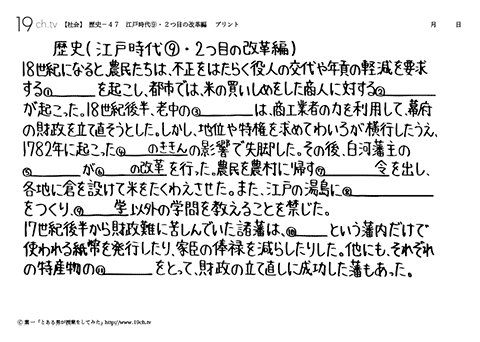 19ch.tv 【社会】 歴史-47 江戸時代⑨・2つ目の改革編 プリント 月 日
歴史(江戸時代⑨・2つ目の改革編)
18世紀になると、農民たちは、不正をはたらく役人の交代や年貢の軽減を要求
する①________を起こし、都市では、米の買いしめをした商人に対する②________
が起こった。18世紀後半、老中の③________は、商工業者の力を利用して、幕府
の財政を立て直そうとした。しかし、地位や特権を求めてわいろが横行したうえ、
1782年に起こった④____のききんの影響で失脚した。その後、白河藩主の
⑤________が⑥____の改革を行った。農民を農村に帰す⑦________令を出し、
各地に倉を設けて米をたくわえさせた。また、江戸の湯島に⑧________
をつくり、⑨____学以外の学問を教えることを禁じた。
17世紀後半から財政難に苦しんでいた諸藩は、⑩____という藩内だけで
使われる紙幣を発行したり、家臣の俸禄を減らしたりした。他にも、それぞれ
の特産物の⑪________をとって、財政の立て直しに成功した藩もあった。
© 葉一「とある男が授業をしてみた」http://www.19ch.tv